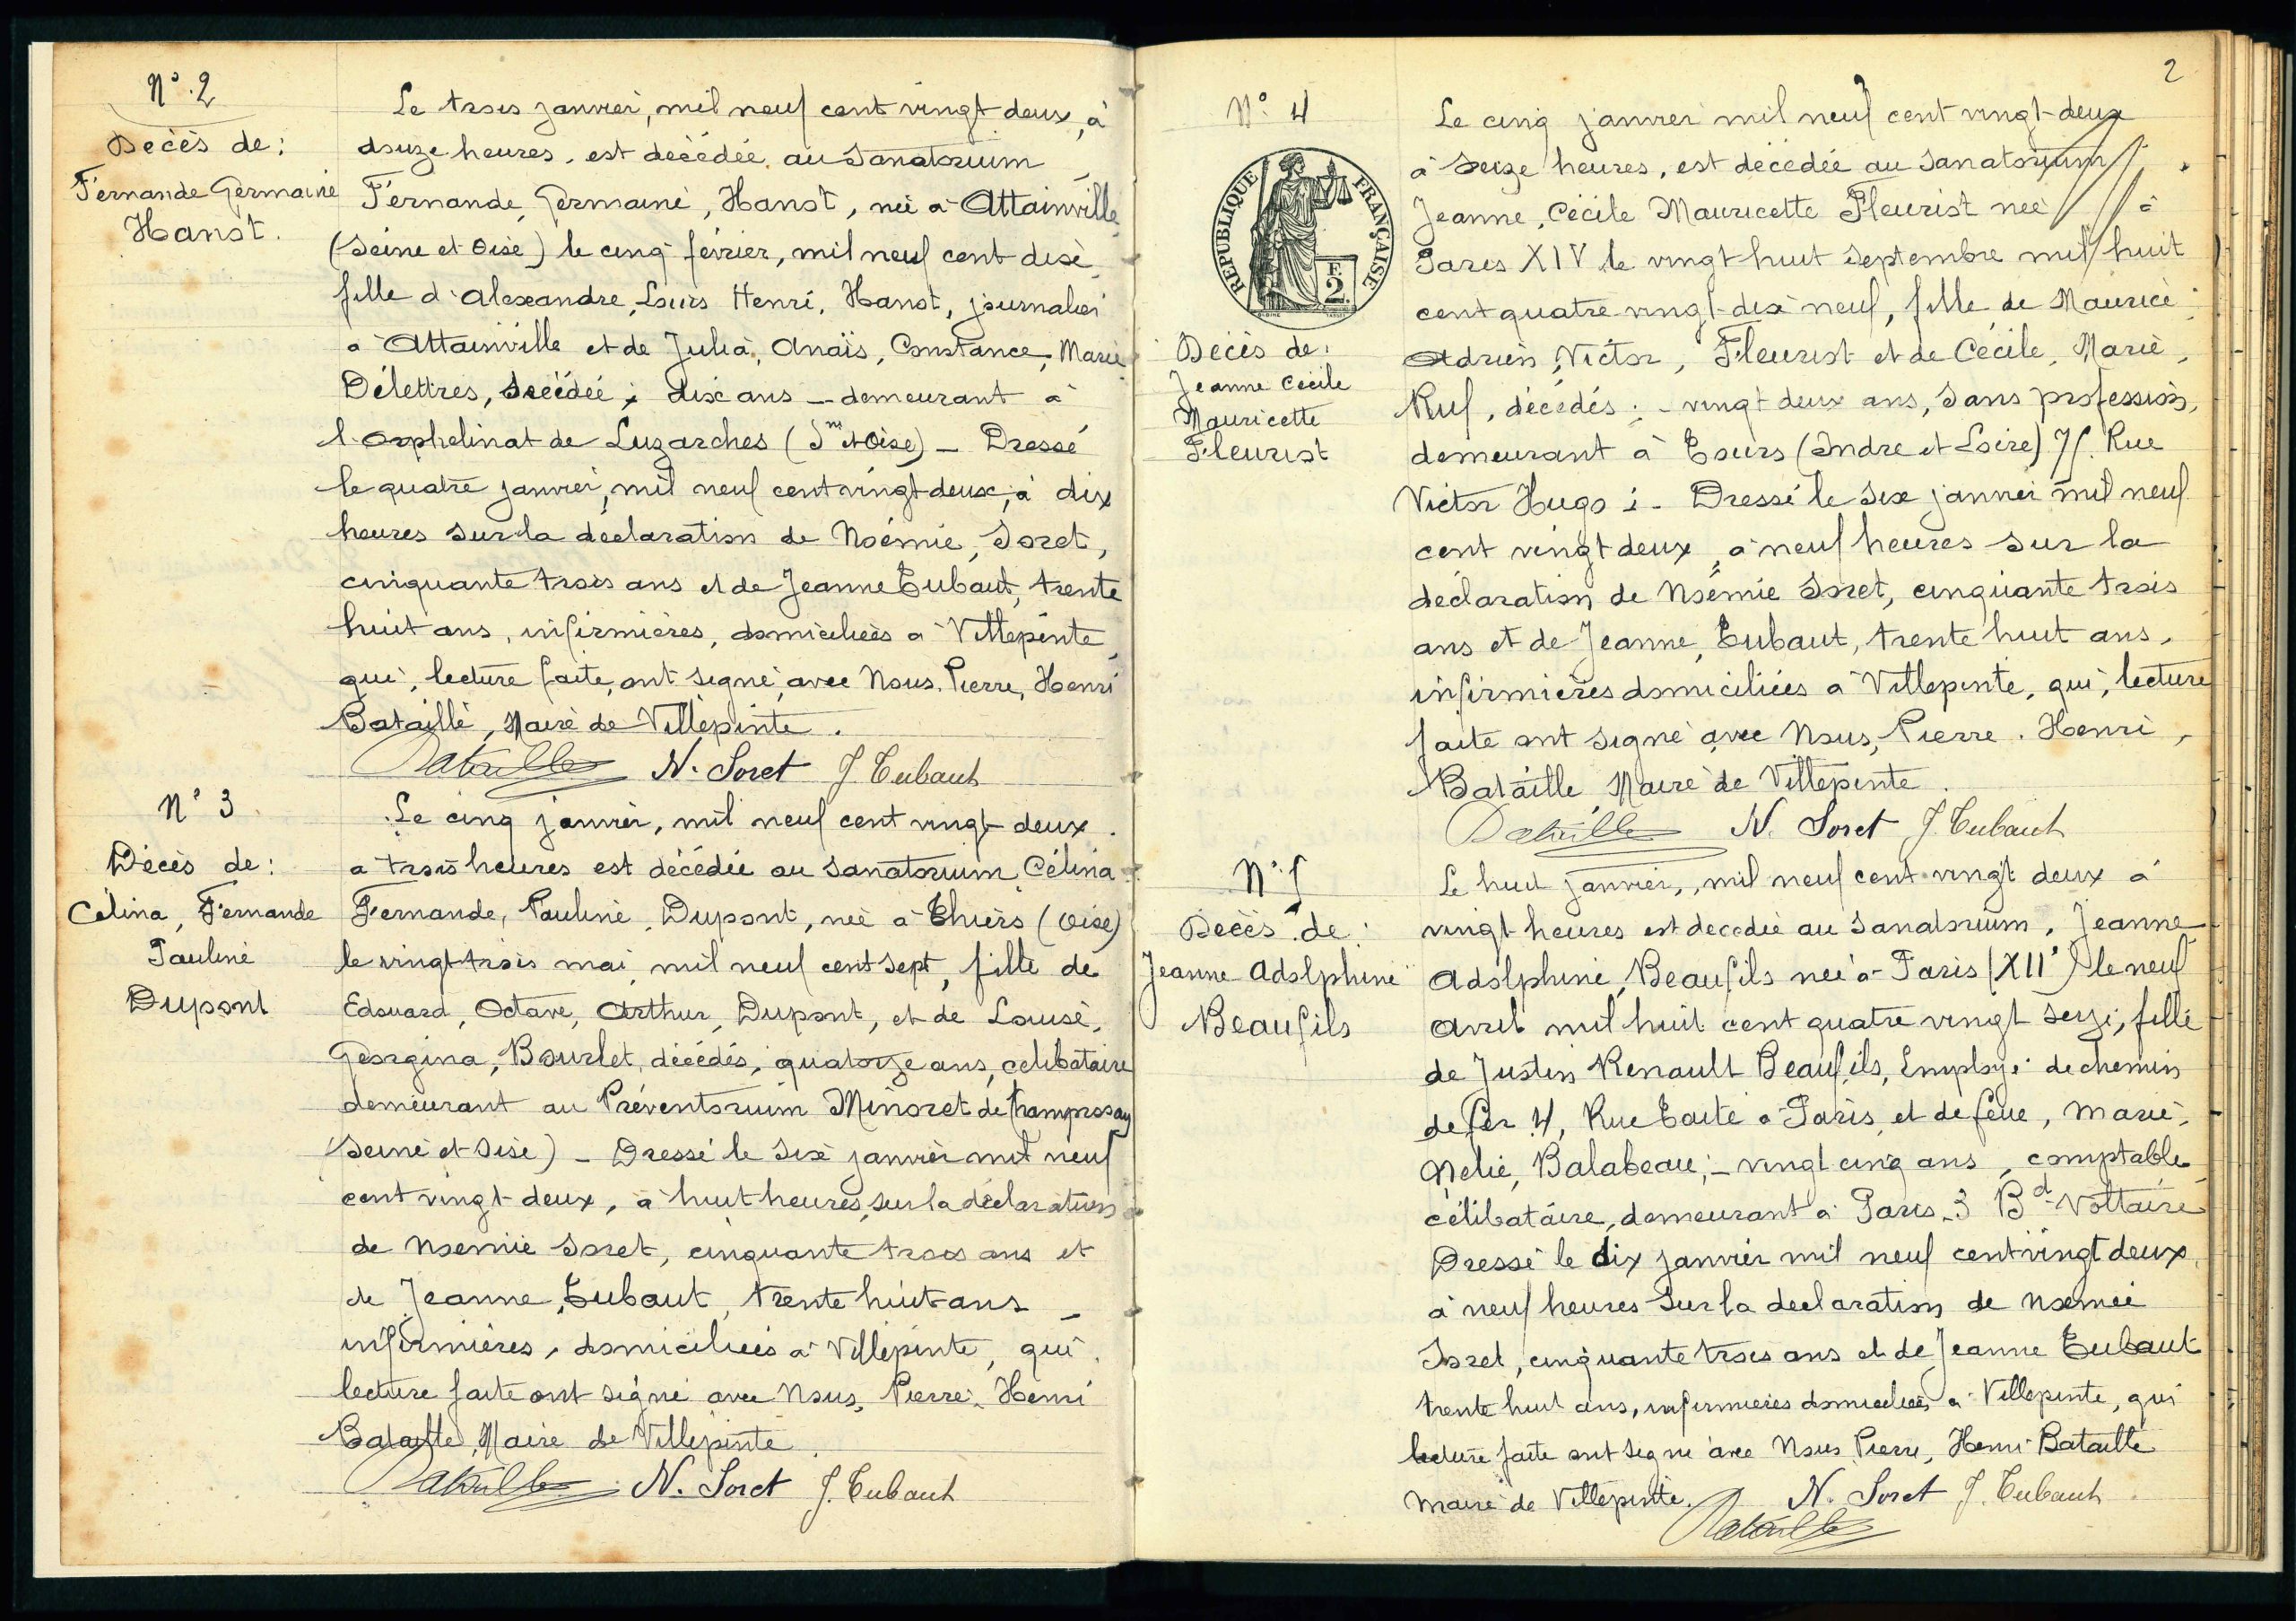 N° 2
Décès de :
Fernande Germaine
Hanot.
Le trois janvier, mil neuf cent vingt deux, à
douze heures, est décédée au Sanatorium
Fernande, Germaine, Hanot, née à Attainville
(Seine et Oise) le cinq février, mil neuf cent dix,
fille d'Alexandre, Louis Henri, Hanot, journalier
à Attainville et de Julia, Anaïs, Constance, Marie
Délettres, décédée ; dix ans – demeurant à
l'orphelinat de Luzarches (S.ne et Oise) – Dressé
le quatre janvier, mil neuf cent vingt deux, à dix
heures sur la déclaration de Noémie, Soret,
cinquante trois ans et de Jeanne Tubaut, trente
huit ans, infirmières, domiciliées à Villepinte,
qui, lecture faite, ont signé avec Nous, Pierre, Henri
Bataille, Maire de Villepinte.
Bataille N. Soret J. Tubaut
N° 3
Décès de :
Célina, Fernande
Pauline
Dupont
Le cinq janvier, mil neuf cent vingt deux.
à trois heures est décédée au sanatorium Célina
Fernande, Pauline, Dupont, née à Thiers (Oise)
le vingt trois mai, mil neuf cent sept, fille de
Edouard, Octave, Arthur, Dupont, et de Louise,
Georgina, Bourlet, décédés, quatorze ans, célibataire
demeurant au Préventorium Minoret de Champrosay
(Seine et Oise) – Dressé le six janvier mil neuf
cent vingt deux, à huit heures, sur la déclaration
de Noémie Soret, cinquante trois ans et
de Jeanne, Tubaut, trente huit ans –
infirmières, domiciliées à Villepinte, qui,
lecture faite ont signé avec Nous, Pierre, Henri
Bataille, Maire de Villepinte.
Bataille N. Soret J. Tubaut
2
N° 4
REPUBLIQUE FRANÇAISE
F.
2
Décès de :
Jeanne Cécile
Mauricette
Fleurist
Le cinq janvier mil neuf cent vingt-deux
à seize heures, est décédée au Sanatorium
Jeanne, Cécile Mauricette Fleurist née à
Paris XIV le vingt huit Septembre mil huit
cent quatre vingt-dix neuf, fille de Maurice
Adrien, Victor, Fleurist et de Cécile, Marie,
Ruf, décédés ; – vingt deux ans, sans profession,
demeurant à Tours (Indre et Loire) 75 Rue
Victor Hugo ; – Dressé le six janvier mil neuf
cent vingt deux, à neuf heures sur la
déclaration de Noémie Soret, cinquante trois
ans et de Jeanne, Tubaut, trente huit ans,
infirmières domiciliées à Villepinte, qui, lecture
faite ont signé avec Nous, Pierre, Henri,
Bataille, Maire de Villepinte.
Bataille N. Soret J. Tubaut
N° 5
Décès de :
Jeanne Adolphine
Beaufils
Le huit janvier, mil neuf cent vingt deux à
vingt heures est décédée au Sanatorium, Jeanne
Adolphine, Beaufils née à Paris (XIIe) le neuf
avril mil huit cent quatre vingt seize, fille
de Justin Renault Beaufils, Employé de chemin
de fer 4, Rue à Paris, et de feue, Marie,
Nelie, Balabeau ; – vingt cinq ans, comptable
célibataire, demeurant à Paris 3 Bd Voltaire
Dressé le dix janvier mil neuf cent vingt deux
à neuf heures sur la déclaration de Noémie
Soret, cinquante trois ans et de Jeanne Tubaut
trente huit ans, infirmières domiciliées à Villepinte, qui
lecture faite ont signé avec Nous Pierre, Henri Bataille
Maire de Villepinte. N. Soret J. Tubaut
Bataille